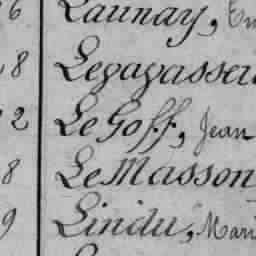 6 Launay,
8 Legagasseu
2 Le Goff, Jean
8 Le Masson
9 Lindu, Mari